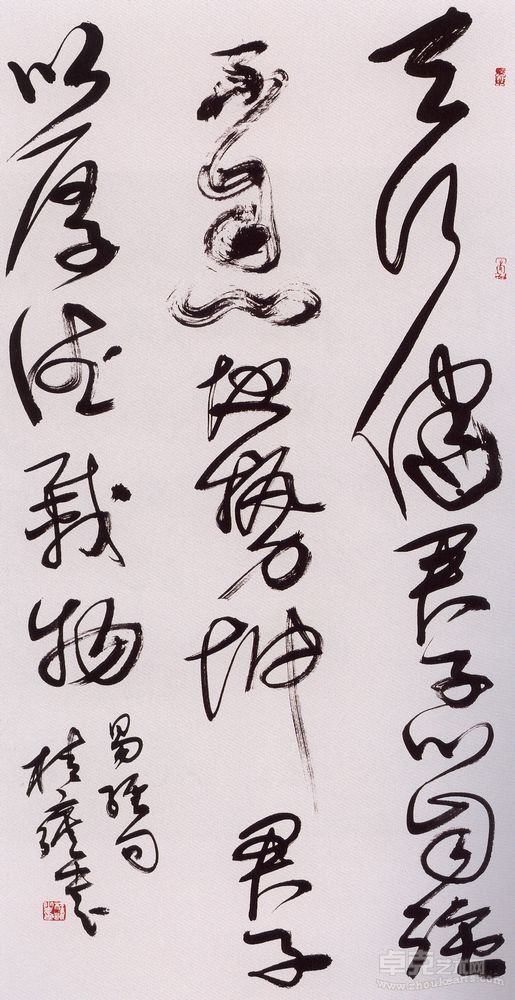 天行健君子以自强
不息地势坤君子
以厚德载物
易经句
桂 书
卓克艺术网
www.zhoukearts.com